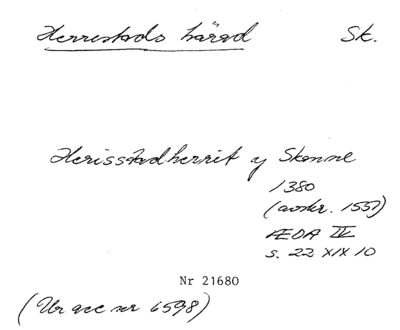 Herrestads härad Sk.
Herisstadherrit y Skonne
1380
(avskr. 1551)
ÆDA IV
s. 22 XIX 10
Nr 21680
(Ur acc nr 6598)